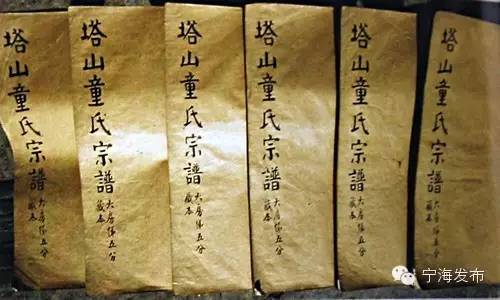 塔山童氏宗譜
大房
第五分
藏本
塔山童氏宗譜
大房第五分
藏本
塔山童氏宗譜
大房第五分
藏本
塔山童氏宗譜
大房第五分
藏本
塔山童氏宗譜
大房第五分
藏本
塔山童氏宗譜
大房第五分
藏本
宁海发布